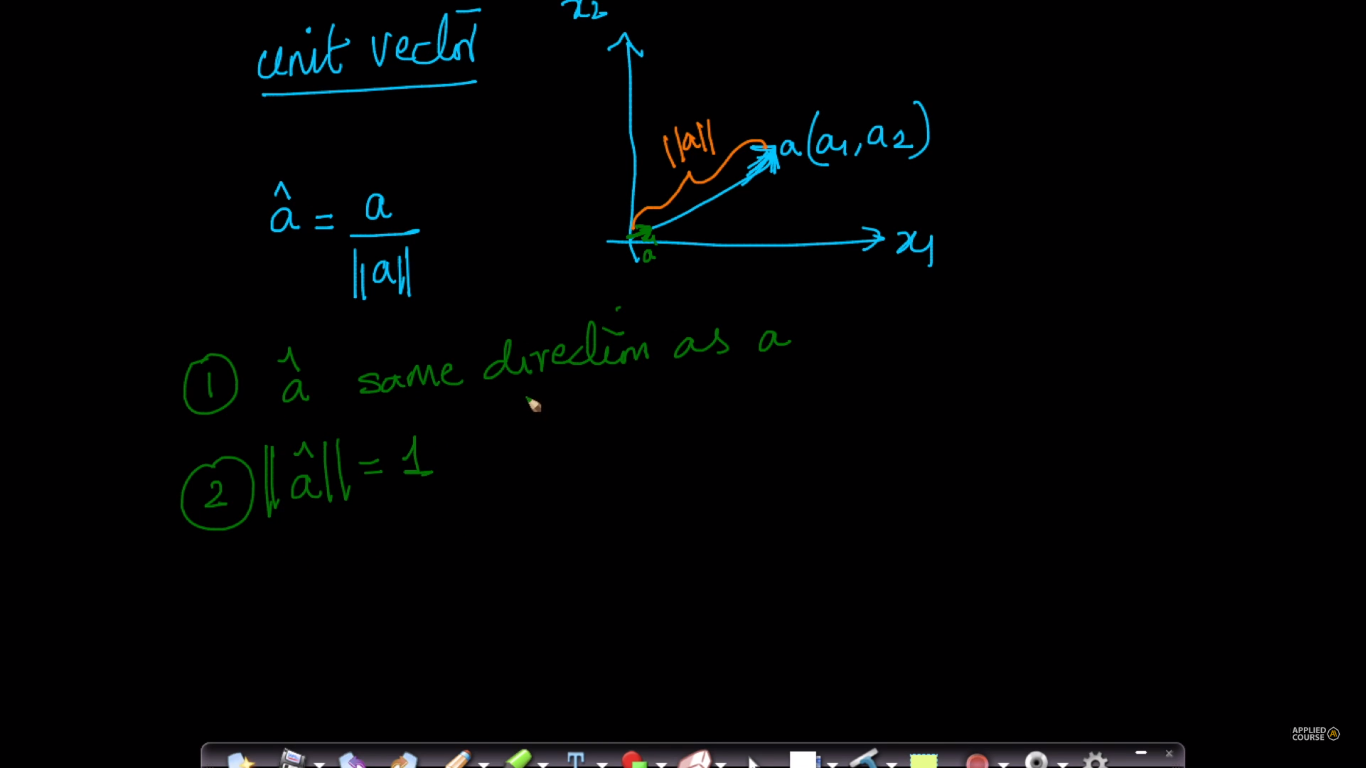 x2
unit vector
||a||
a(a1, a2)
â = a / ||a||
x1
a
① â same direction as a
② ||â|| = 1
APPLIED
COURSE